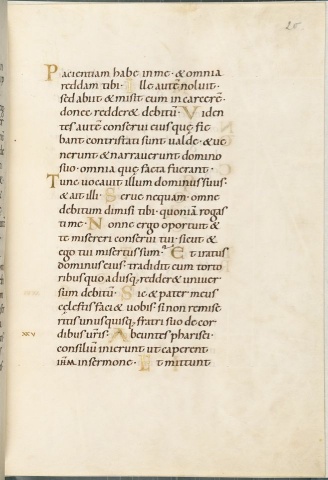 20
Pacientiam habe inme · & omnia
reddam tibi · Ille autē noluit ·
sed abiit & misit eum incarcerē ·
donec redder& debitū · Viden
tes autē conserui eius quę fie
bant contristati sunt ualde · & ue
nerunt & narrauerunt domino
suo · omnia quę facta fuerant ·
Tunc uocauit illum dominus suus ·
& ait illi · Serue nequam · omne
debitum dimisi tibi · quoniā rogas
ti me · Nonne ergo oportuit &
te misereri conserui tui · sicut &
ego tui misertus sum · Et iratus
dominus eius · tradidit eum torto
ribus quo adusq; redder& uniuer
sum debitū · Sic & pater meus
cęlestis faci& uobis · si non remise
ritis unusquisq; fratri suo de cor
xcv
dibus ur̄is · Abeuntes pharisei ·
consiliū inierunt ut caperent
ih̄m insermone · Et mittunt